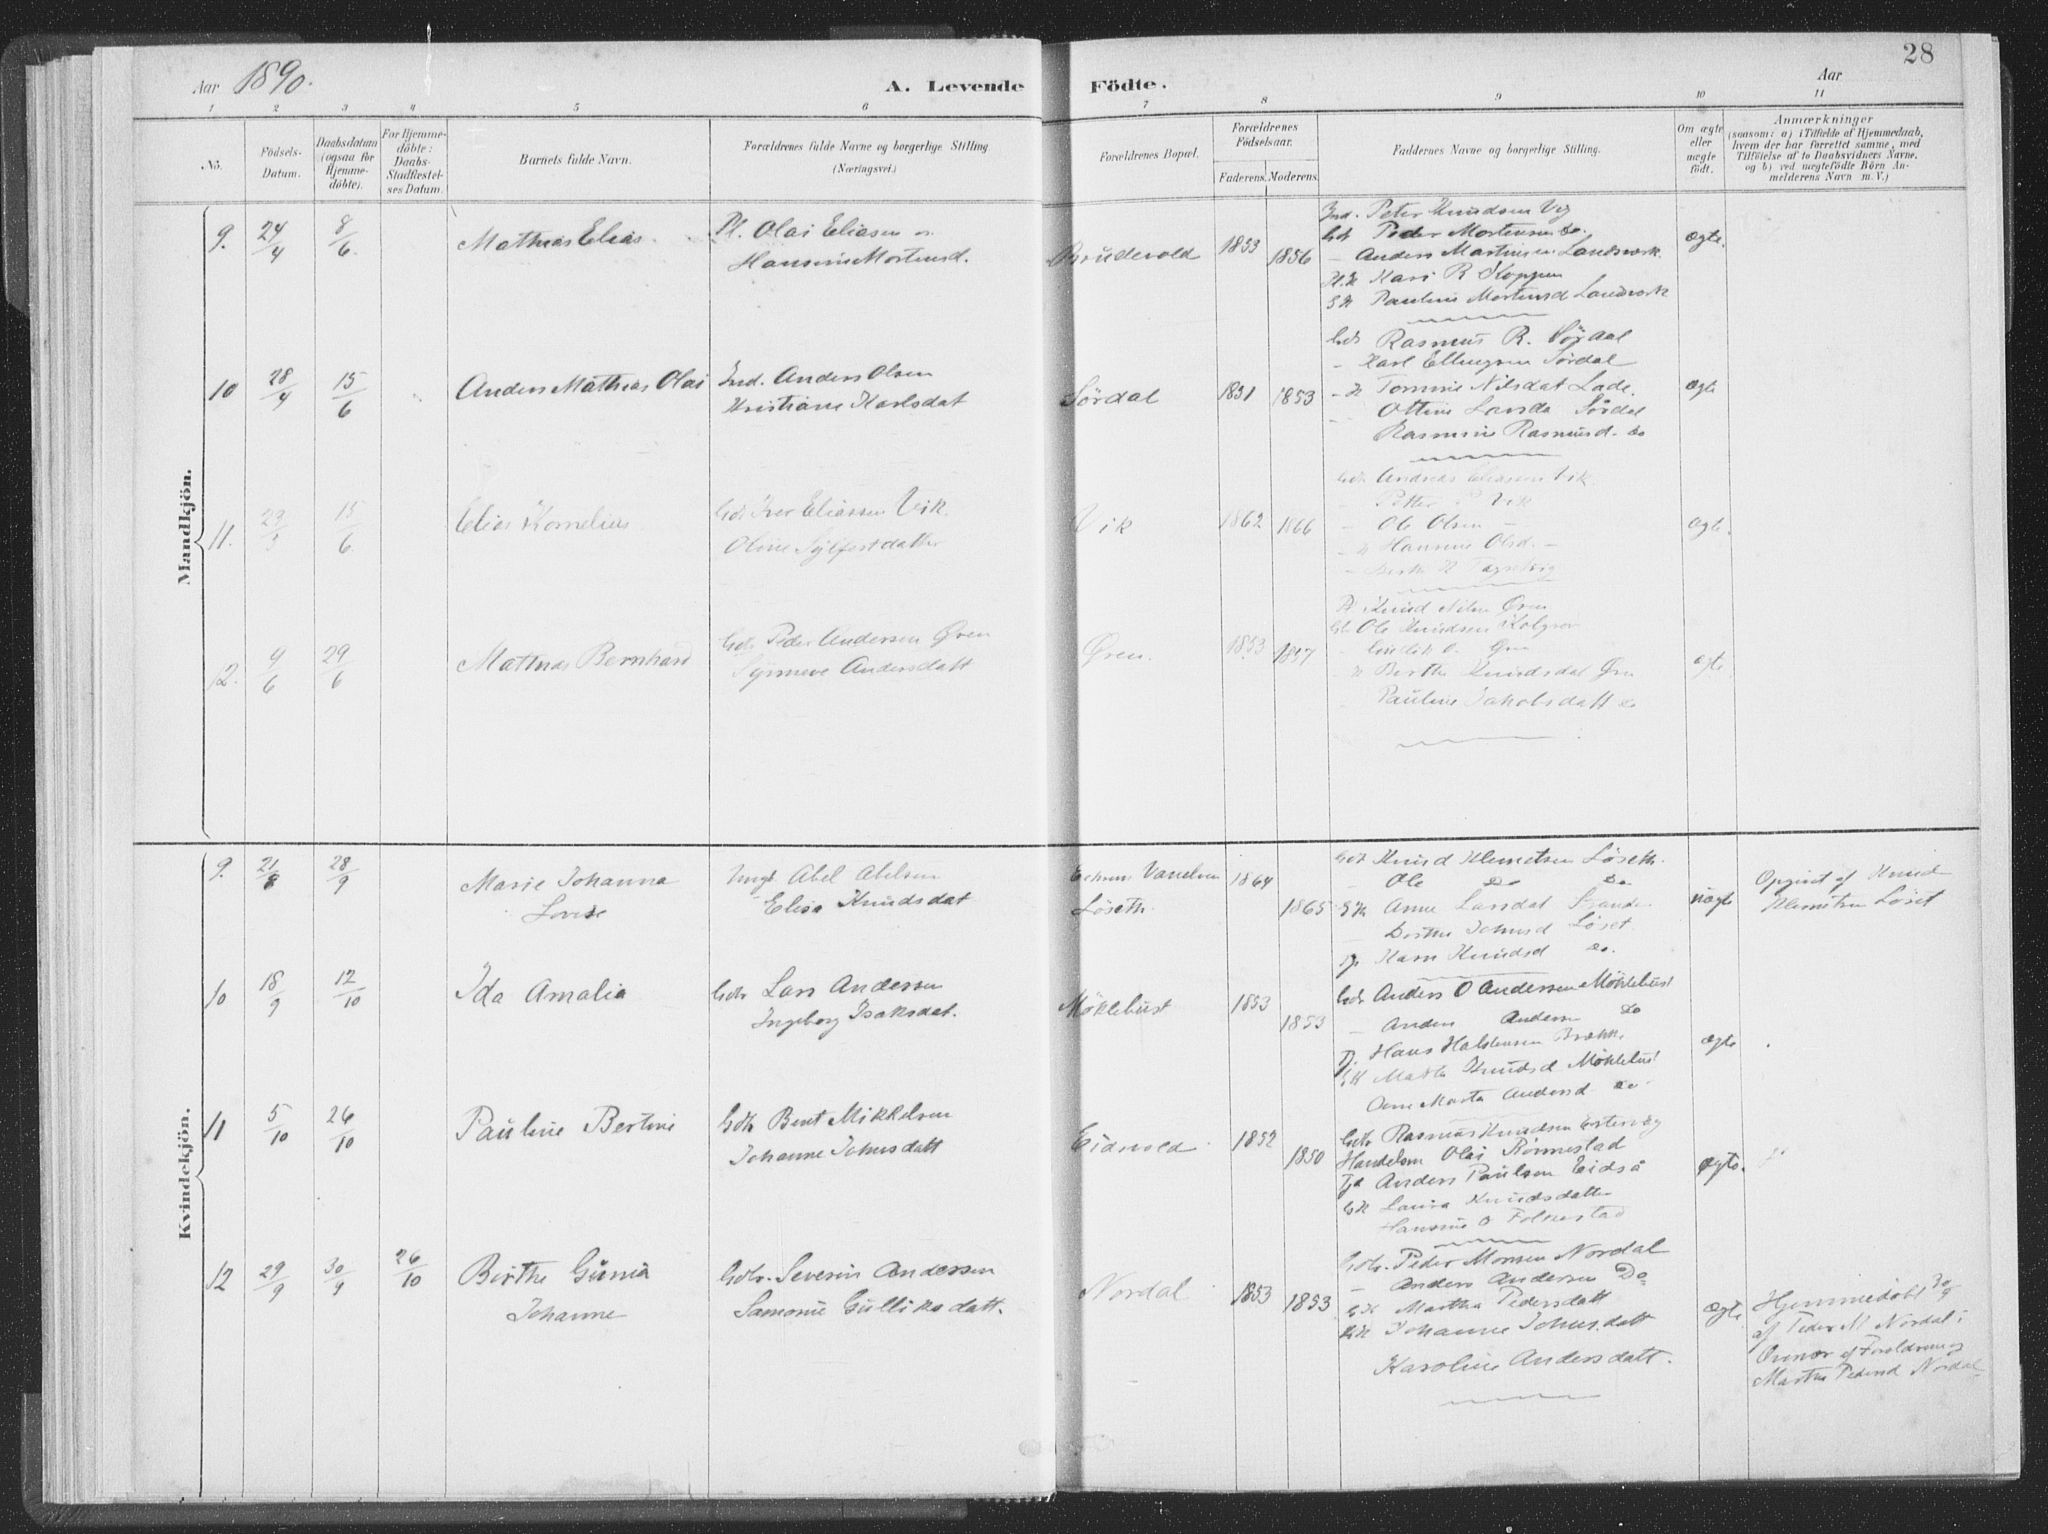 28
Aar 1890.
A. Levende Födte.
Aar
1 2 3 4 5 6 7 8 9 10 11
No.
Födsels-Datum.
Daabsdatum (ogsaa for Hjemme-döbte).
For Hjemme-döbte: Daabs-Stadfæstel-ses Datum.
Barnets fulde Navn.
Forældrenes fulde Navne og borgerlige Stilling
(Næringsvei.)
Forældrenes Bopæl.
Forældrenes Födselsaar.
Faderens. Moderens.
Faddernes Navne og borgerlige Stilling.
Om ægte eller uægte födt.
Anmærkninger
(saasom: a) i Tilfælde af Hjemmedaab,
hvem der har forrettet samme, med
Tilföielse af to Daabsvidners Navne,
og b) ved uægtefödte Börn An-
melderens Navn m. V.)
Mandkjön.
9. 24/4 8/6 Mathias Elias
Pl. Olai Eliasen
Hansine Mortensd.
Brudevold 1853 1856
Ind. Peter Knudsen Vig
Peder Mortensen Do.
- Anders Martinsen Landsverk
Kari R Koppen
Pauline Mortensd Landsverk
ægte
10 28/4 15/6 Anders Mathias Olai
Ind. Anders Olsen
Kristiane Karlsdat
Sördal 1851 1853
Rasmus R. Sördal
- Karl Ellingsen Sördal
Nilsdat Lade
Ottine Larsda Sördal
Rasmine Rasmusd. Do
ægte
11. 15/6 Elias Kornelius
Gdr Iver Eliassen Vik
Oline Sylfestdatter
Vik 1862 1866
Andreas Eliasen Vik
Petter Vik
- Ole Olsen -
Hansine Olsd. -
ægte.
12. 9/6 29/6 Mathias Bernhard
Gdr Peder Andersen Øren
Synneve Andersdatt
Øren. 1853 1857
Knud Nilsen Øren
Ole Knudsen
Berthe Knudsdat Øren
Pauline Jakobsdatt Do
ægte
Kvindekjön.
9. 21/8 28/9 Marie Johanna
Lovise
Ungk Abel Abelsen
Elisa Knudsdat
Löseth 1864 1865
Knud Klemetsen Löseth
Ole Do Do
Anne Larsdat
Berthe Johnsd Löset
Karn Knudsd Do.
uægte
Opgivet af Knud
Klemetsen Löset
10 18/9 12/10 Ida Amalia
Gdr Lars Andersen
Ingeborg Isaksdat.
Möklebust 1853 1853
Gdr Anders O Andersen Möklebust
- Anders Andersen Do
Hans Halstensen
Knudsd Möklebust
Marta Andersd Do
ægte
11 5/10 26/10 Pauline Bertine
Gdr Bent Mikkelsen
Johanne Johnsdatt
Eidsvold 1852 1850
Gdr Rasmus Knudsen
Handelsm Olai Rönnestad
Anders Paulsen Eidså
Laura Knudsdatter
Hansine O Folkestad
ægte.
12 29/9 30/9 26/10 Birthe Gunia
Johanne
Gdbr. Severin Andersen
Samonie Gulliksdatt.
Nordal 1853 1853
Gdbr. Peder Monsen Nordal
- Anders Andersen Do
Martha Pedersdatt
Johanne Johnsdatt
Karoline Andersdatt.
ægte
Hjemmedöbt 30/9
af Peder M Nordal i
Overvær af Foreldrene og
Martha Pedersd Nordal